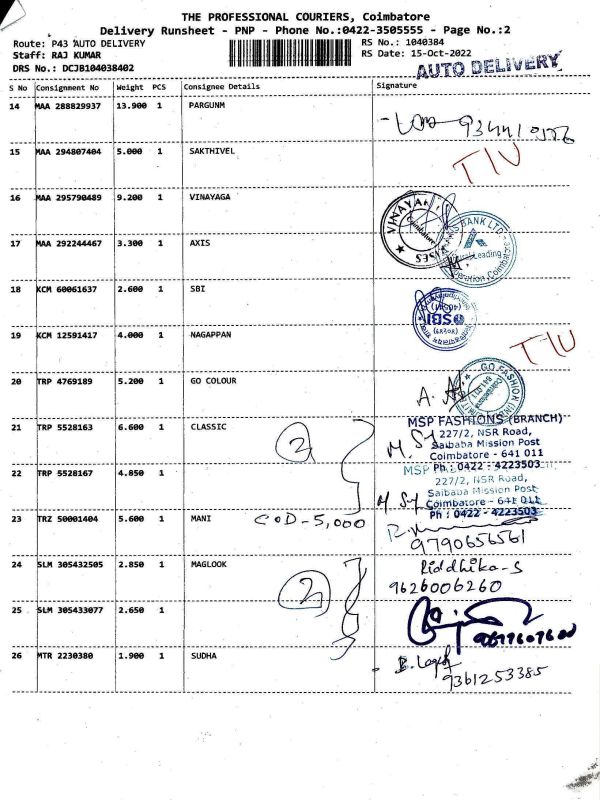 THE PROFESSIONAL COURIERS, Coimbatore
Delivery Runsheet - PNP - Phone No.:0422-3505555 - Page No.:2
Route: P43 AUTO DELIVERY
RS No.: 1040384
Staff: RAJ KUMAR
RS Date: 15-Oct-2022
DRS No.: DCJB104038402
AUTO DELIVERY
S No Consignment No Weight PCS Consignee Details Signature
14 MAA 288829937 13.900 1 PARGUNM
15 MAA 294807404 5.000 1 SAKTHIVEL
16 MAA 295790489 9.200 1 VINAYAGA
17 MAA 292244467 3.300 1 AXIS
AXIS BANK LTD
18 KCM 60061637 2.600 1 SBI
SBI
19 KCM 12591417 4.000 1 NAGAPPAN
20 TRP 4769189 5.200 1 GO COLOUR
GO FASHION
21 TRP 5528163 6.600 1 CLASSIC
2
MSP FASHIONS (BRANCH)
227/2, NSR Road,
Saibaba Mission Post
Coimbatore - 641 011
Ph : 0422 - 4223503
22 TRP 5528167 4.850 1
227/2, NSR Road,
Saibaba Mission Post
Coimbatore - 641 011
Ph : 0422 - 4223503
23 TRZ 50001404 5.600 1 MANI COD - 5,000
9790656561
24 SLM 305432505 2.850 1 MAGLOOK Riddhika-S
9626006260
2
25 SLM 305433077 2.650 1
26 MTR 2230380 1.900 1 SUDHA
9361253385